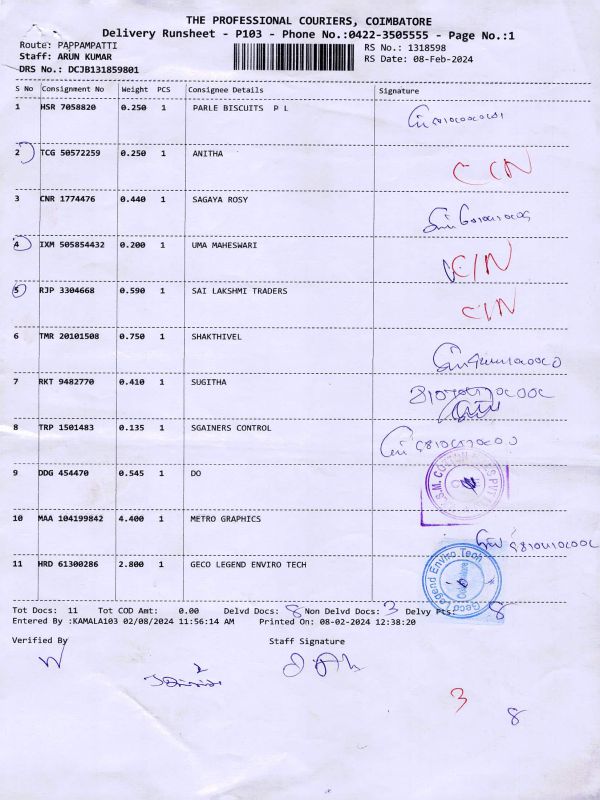 THE PROFESSIONAL COURIERS, COIMBATORE
Delivery Runsheet - P103 - Phone No.:0422-3505555 - Page No.:1
Route: PAPPAMPATTI RS No.: 1318598
Staff: ARUN KUMAR RS Date: 08-Feb-2024
DRS No.: DCJB131859801
S No Consignment No Weight PCS Consignee Details Signature
1 HSR 7058820 0.250 1 PARLE BISCUITS P L
2 TCG 50572259 0.250 1 ANITHA
C/N
3 CNR 1774476 0.440 1 SAGAYA ROSY
4 IXM 505854432 0.200 1 UMA MAHESWARI
C/N
5 RJP 3304668 0.590 1 SAI LAKSHMI TRADERS
C/N
6 TMR 20101508 0.750 1 SHAKTHIVEL
7 RKT 9482770 0.410 1 SUGITHA
8 TRP 1501483 0.135 1 SGAINERS CONTROL
9 DDG 454470 0.545 1 DO
10 MAA 104199842 4.400 1 METRO GRAPHICS
11 HRD 61300286 2.800 1 GECO LEGEND ENVIRO TECH
Geco Legend Enviro Tech
Coimbatore
Tot Docs: 11 Tot COD Amt: 0.00 Delvd Docs: 8 Non Delvd Docs: 3 Delvy Pts: 8
Entered By :KAMALA103 02/08/2024 11:56:14 AM Printed On: 08-02-2024 12:38:20
Verified By Staff Signature
3
8